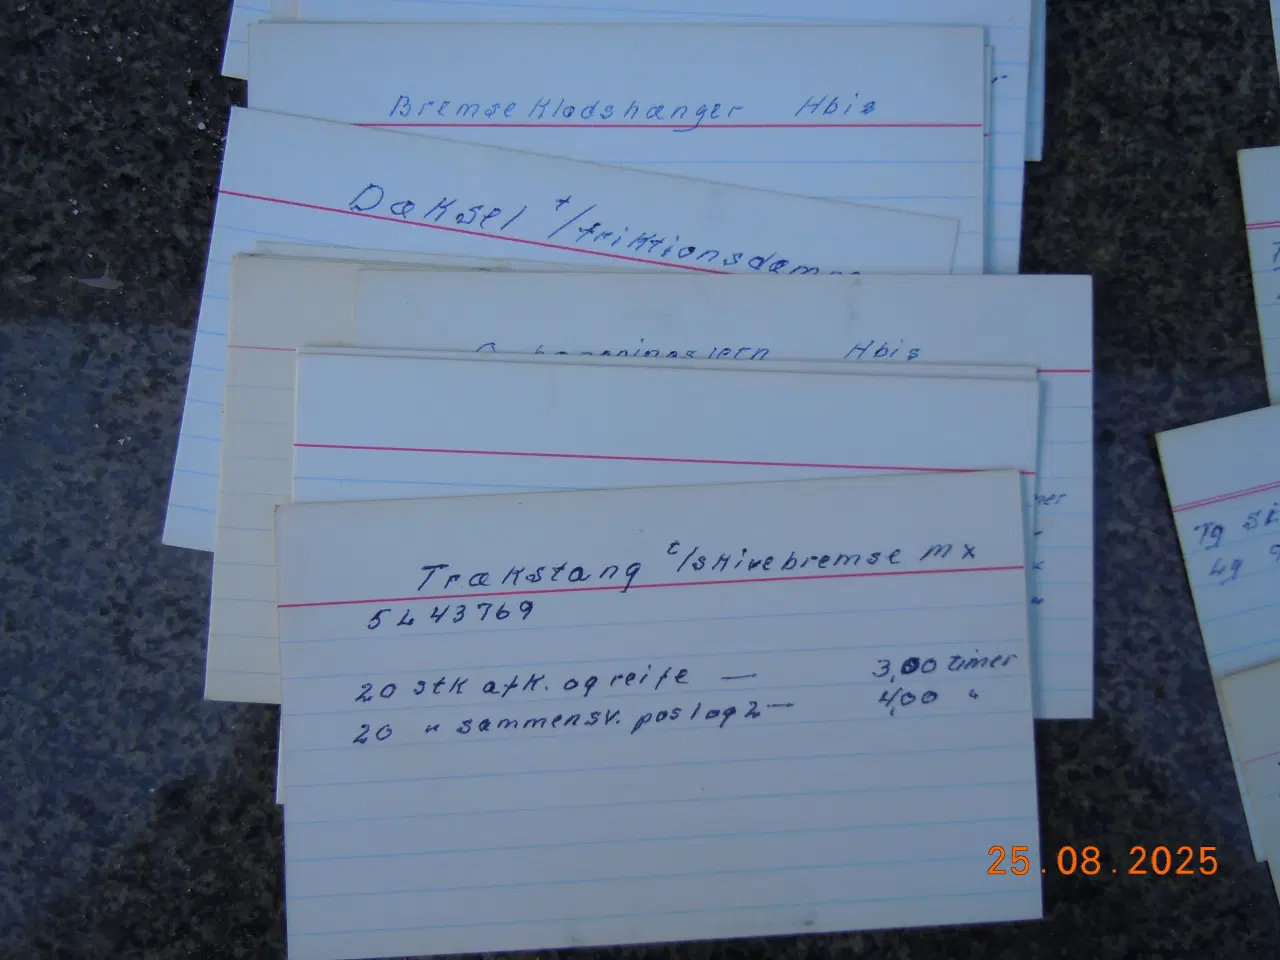 Bremseklodshænger Hbis
Dæksel t/friktionsdæmpe
Hbis
Trækstang t/skivebremse MX
5443769
20 stk afk. og reife — 3,00 timer
20 " sammensv. pos 1 og 2 — 4,00 "
Tg
4g
25.08.2025